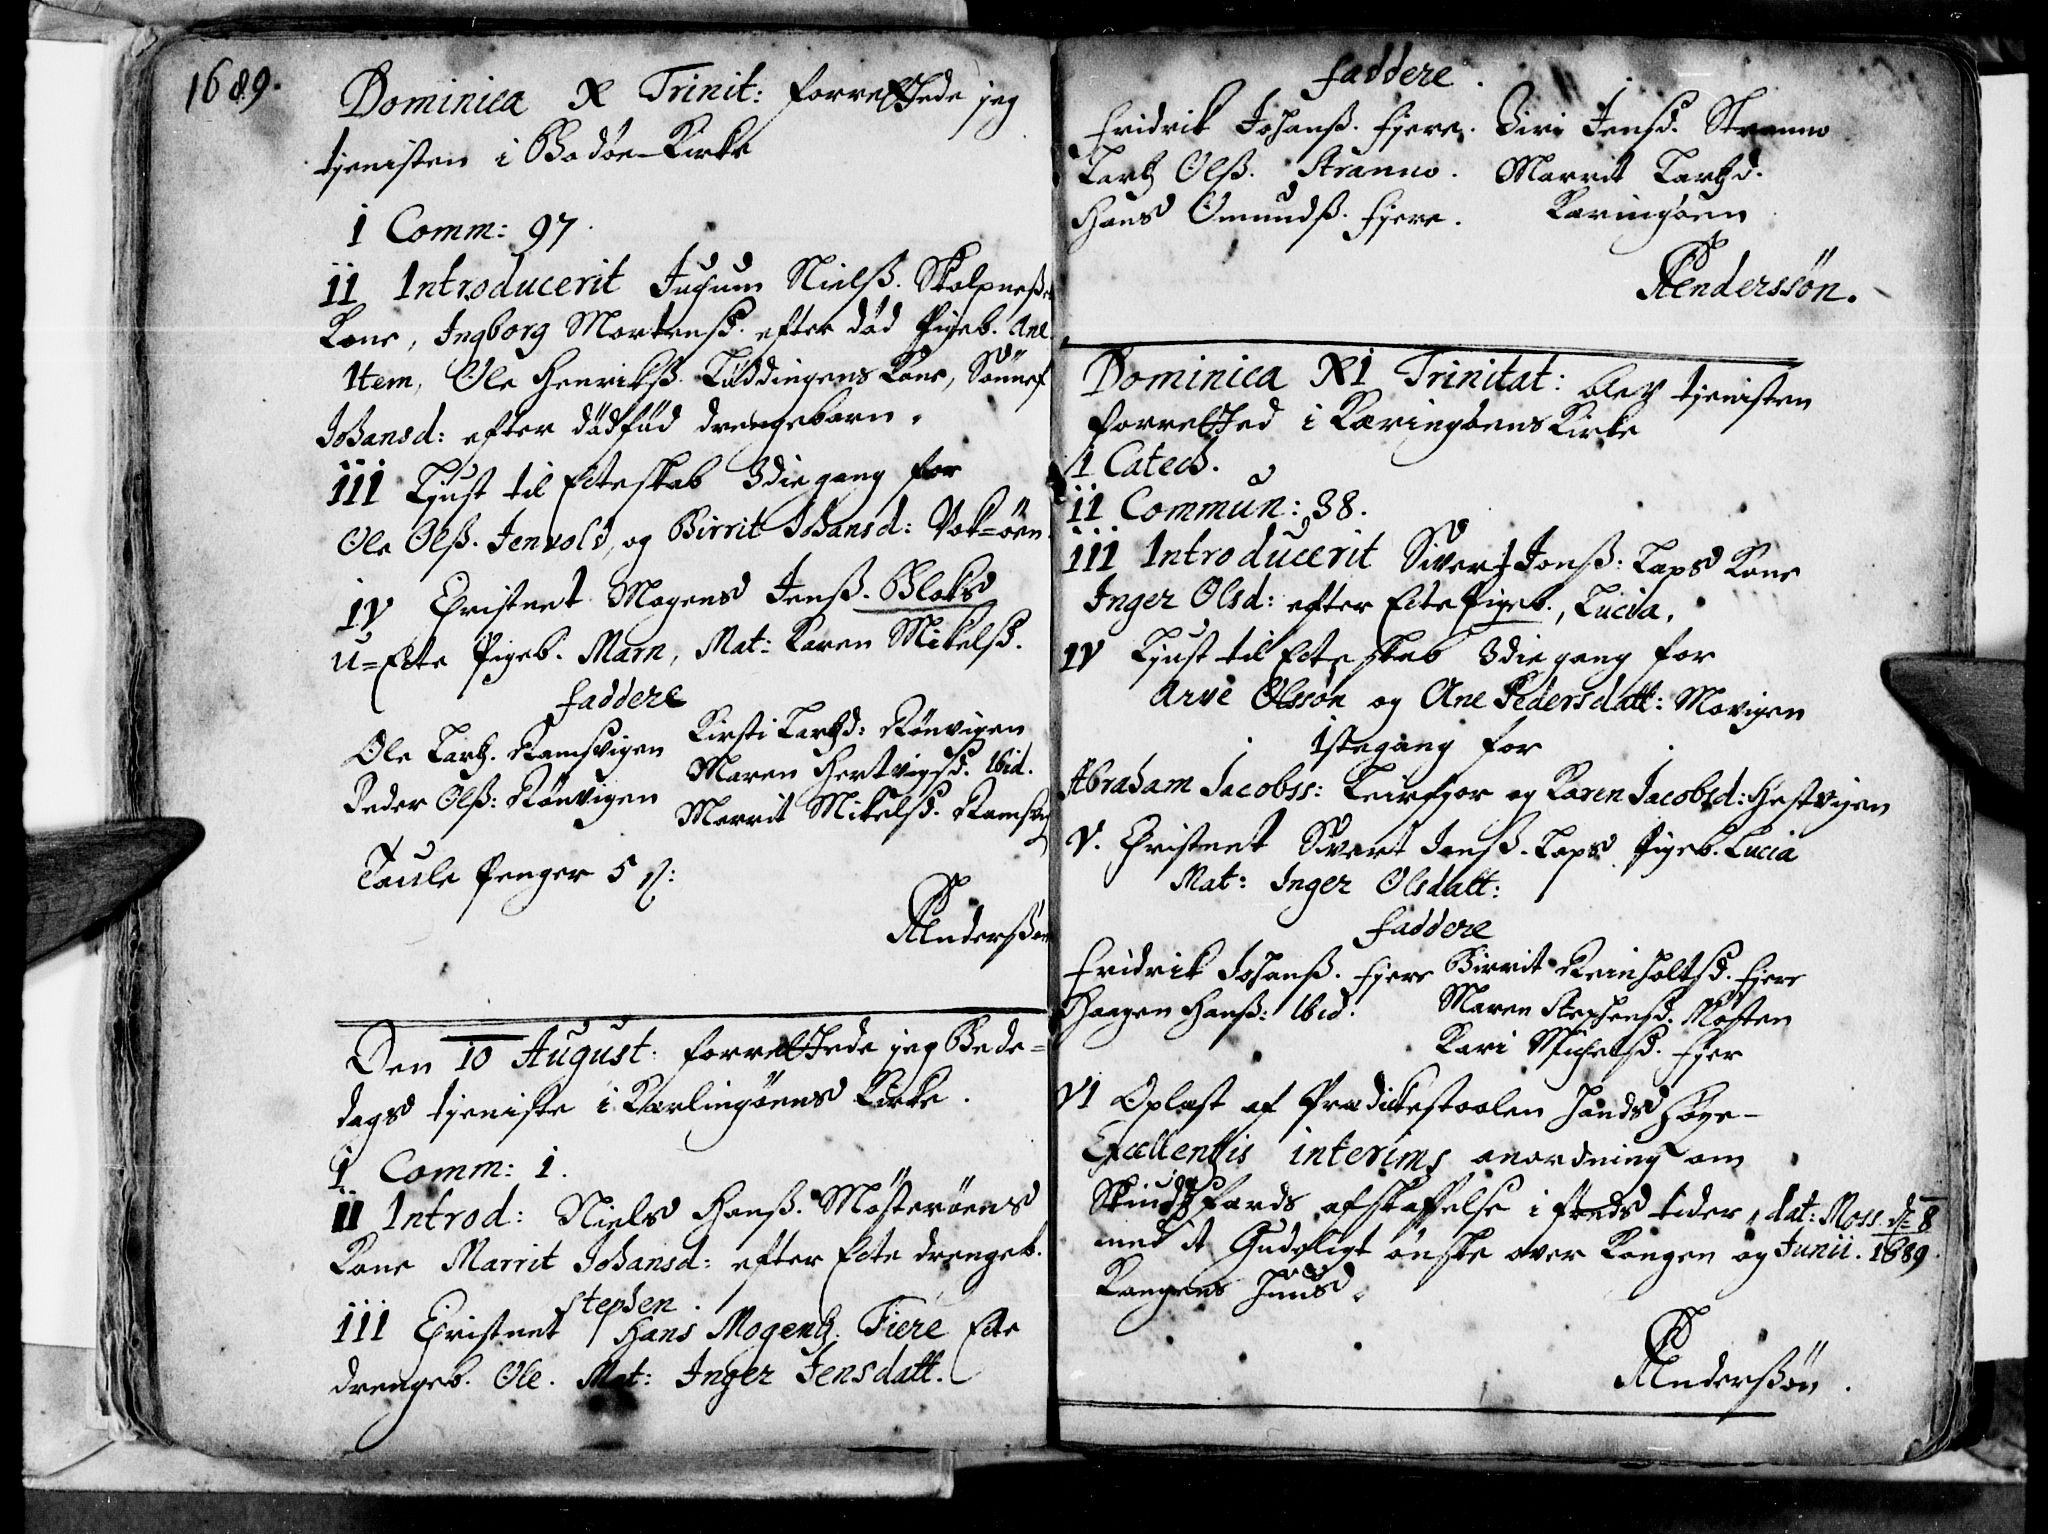 1689.
Dominica X Trinit: forrettede jeg
tjenisten i Bodøe-Kirke
i Comm: 97.
ii Introducerit Jochum Nielß. Skolpneß
Kone, Ingborg Mortensd. efter död Pigeb. Ane
Item, Ole Henrikß. Löddingens Kone, Sönnef
Johansd: efter dödföd drengebarn.
iii Liust til Ecteskab 3die gang for
Ole Olß. Jenvold, og Birrit Johansd: Vok=öen.
iv Christnet Mogens Jenß. Bloks
u=Ecte Pigeb. Marn, Mat: Karen Mikelsd.
faddere
Ole Lartz. Ramsvigen
Kirsti Lartzd: Rönvigen
Peder Olß: Rönvigen
Maren Hertvigsd. ibid.
Marrit Mikelsd. Ramsvig
Taule Penger 5
Anderßön
Den 10 August: forrettede jeg Bede=
dags tjeniste i Kærlingöens Kirke.
i Comm: 1.
ii Introd: Niels Hanß. Mösteröens
Kone Marrit Johansd: efter Ecte drengeb.
Stephen.
iii Christnet Hans Mogentz. Fiere Ecte
drengeb. Ole. Mat: Inger Jensdatt.
faddere.
Fridrik Johanß. Fjere. Siri Jensd. Stranno
Lartz Olß. Stranno. Marrit Lartzd.
Hans Omundß. Fjere. Kæringöen
Anderssön.
Dominica XI Trinitat: blev tjenisten
forretted i Kæringöens Kirke
i Catech.
ii Commun: 38.
iii Introducerit Sivert Jonß: Laps Kone
Inger Olsd: efter Ecte Pigeb., Lucia.
iv Liust til Ecteskab 3die gang for
Arve Olssøn og Ane Pedersdatt: Movigen
1stegang for
Abraham Jacobss: Leirfjor og Karen Jacobsd: Hestvigen
V. Christnet Sivert Jonß. Laps Pigeb. Lucia
Mat: Inger Olsdatt:
faddere
Fridrik Johanß. Fjere Birrit Reinholtsd. Fjere
Haagen Hanß: ibid. Maren Stephensd. Mösten
Kari Michelsd. Fjer
VI Oplæst af Prædikestoolen Hands Høye-
Excellentzis interims anordning om
Skiudsfærds afskaffelse i freds tider, dat: Moss. d. 8
med it Gudeligt önske over Kongen og Junii. 1689.
Kongens Huus.
Anderßön.